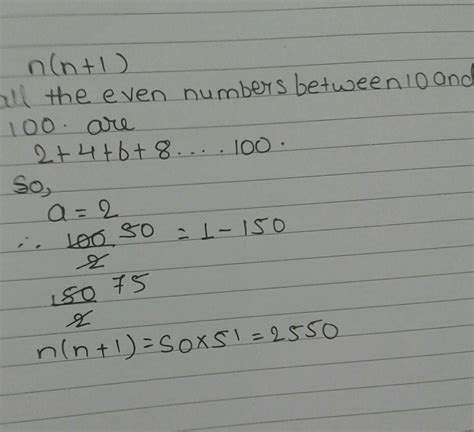 n(n+1)
all the even numbers between 10 and
100. are
2+4+6+8....100.
So,
a = 2
∴ 100/2 50 = 1-150
150/2 75
n(n+1)=50×51=2550